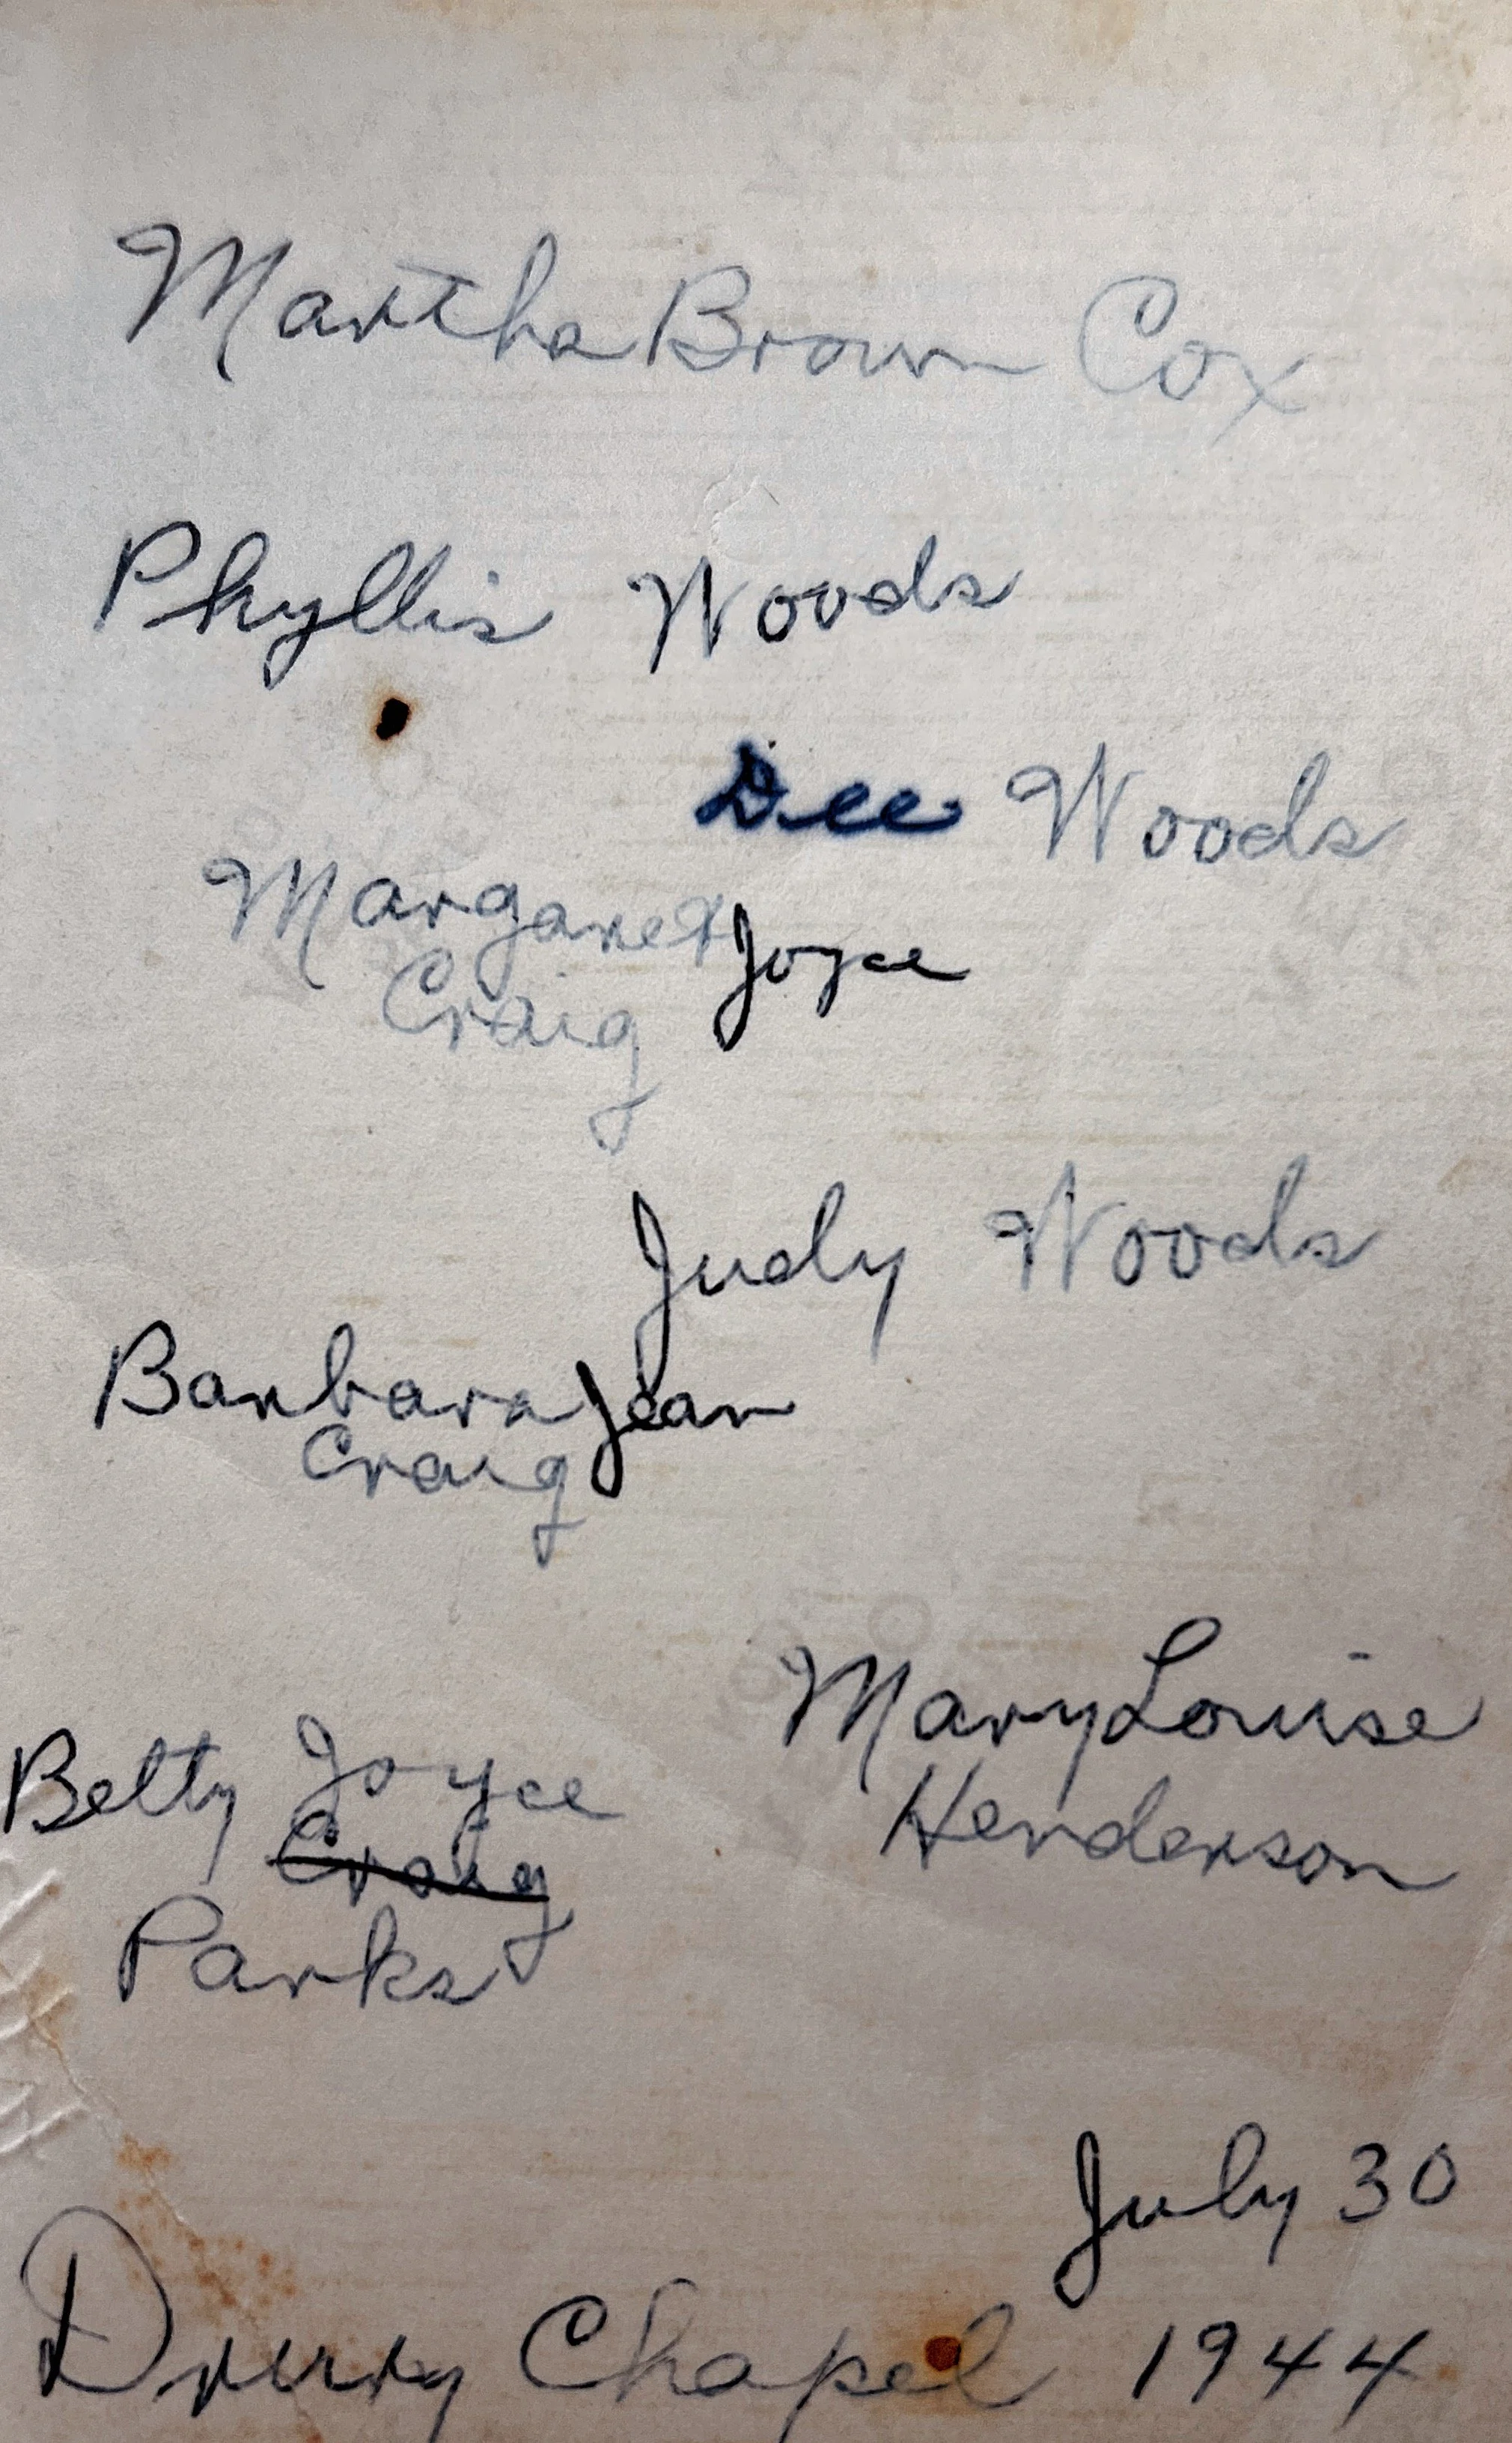 Martha Brown Cox
Phyllis Woods
Dee Woods
Margaret Joyce
Craig
Judy Woods
Barbara Jean
Craig
Mary Louise
Henderson
Betty Joyce
Craig
Parks
July 30
Drury Chapel 1944